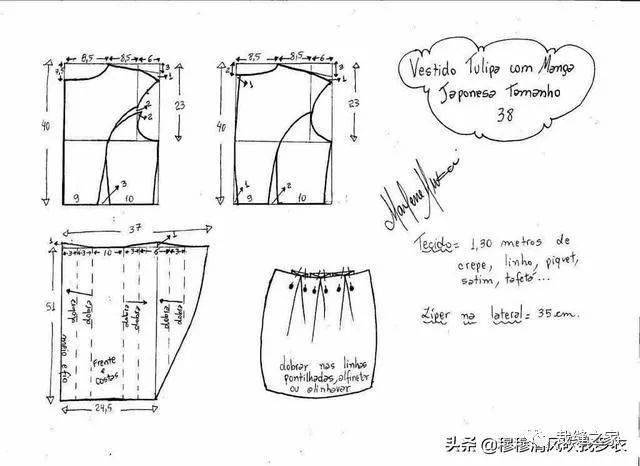 Vestido Tulipa com Manga
Japonesa Tamanho
38
8,5 8,5 6
3
1
2
2
40
23
9
3
10
7,5 8,5 6
3
2
1
1
40
23
9
2
10
37
1
1
3 4 3 10 3 4 6 3
51
dobra
dobra
dobra
dobra
dobra
dobra
meio e fio
Frente
e
costas
24,5
dobrar nas linhas
pontilhadas, alfinetar
ou alinhavar
Tecido= 1,30 metros de
crepe, linho, piquet,
satim, tafetá...
Ziper na lateral = 35 cm.
裁缝之家
头条 @穆穆清风吹我梦衣